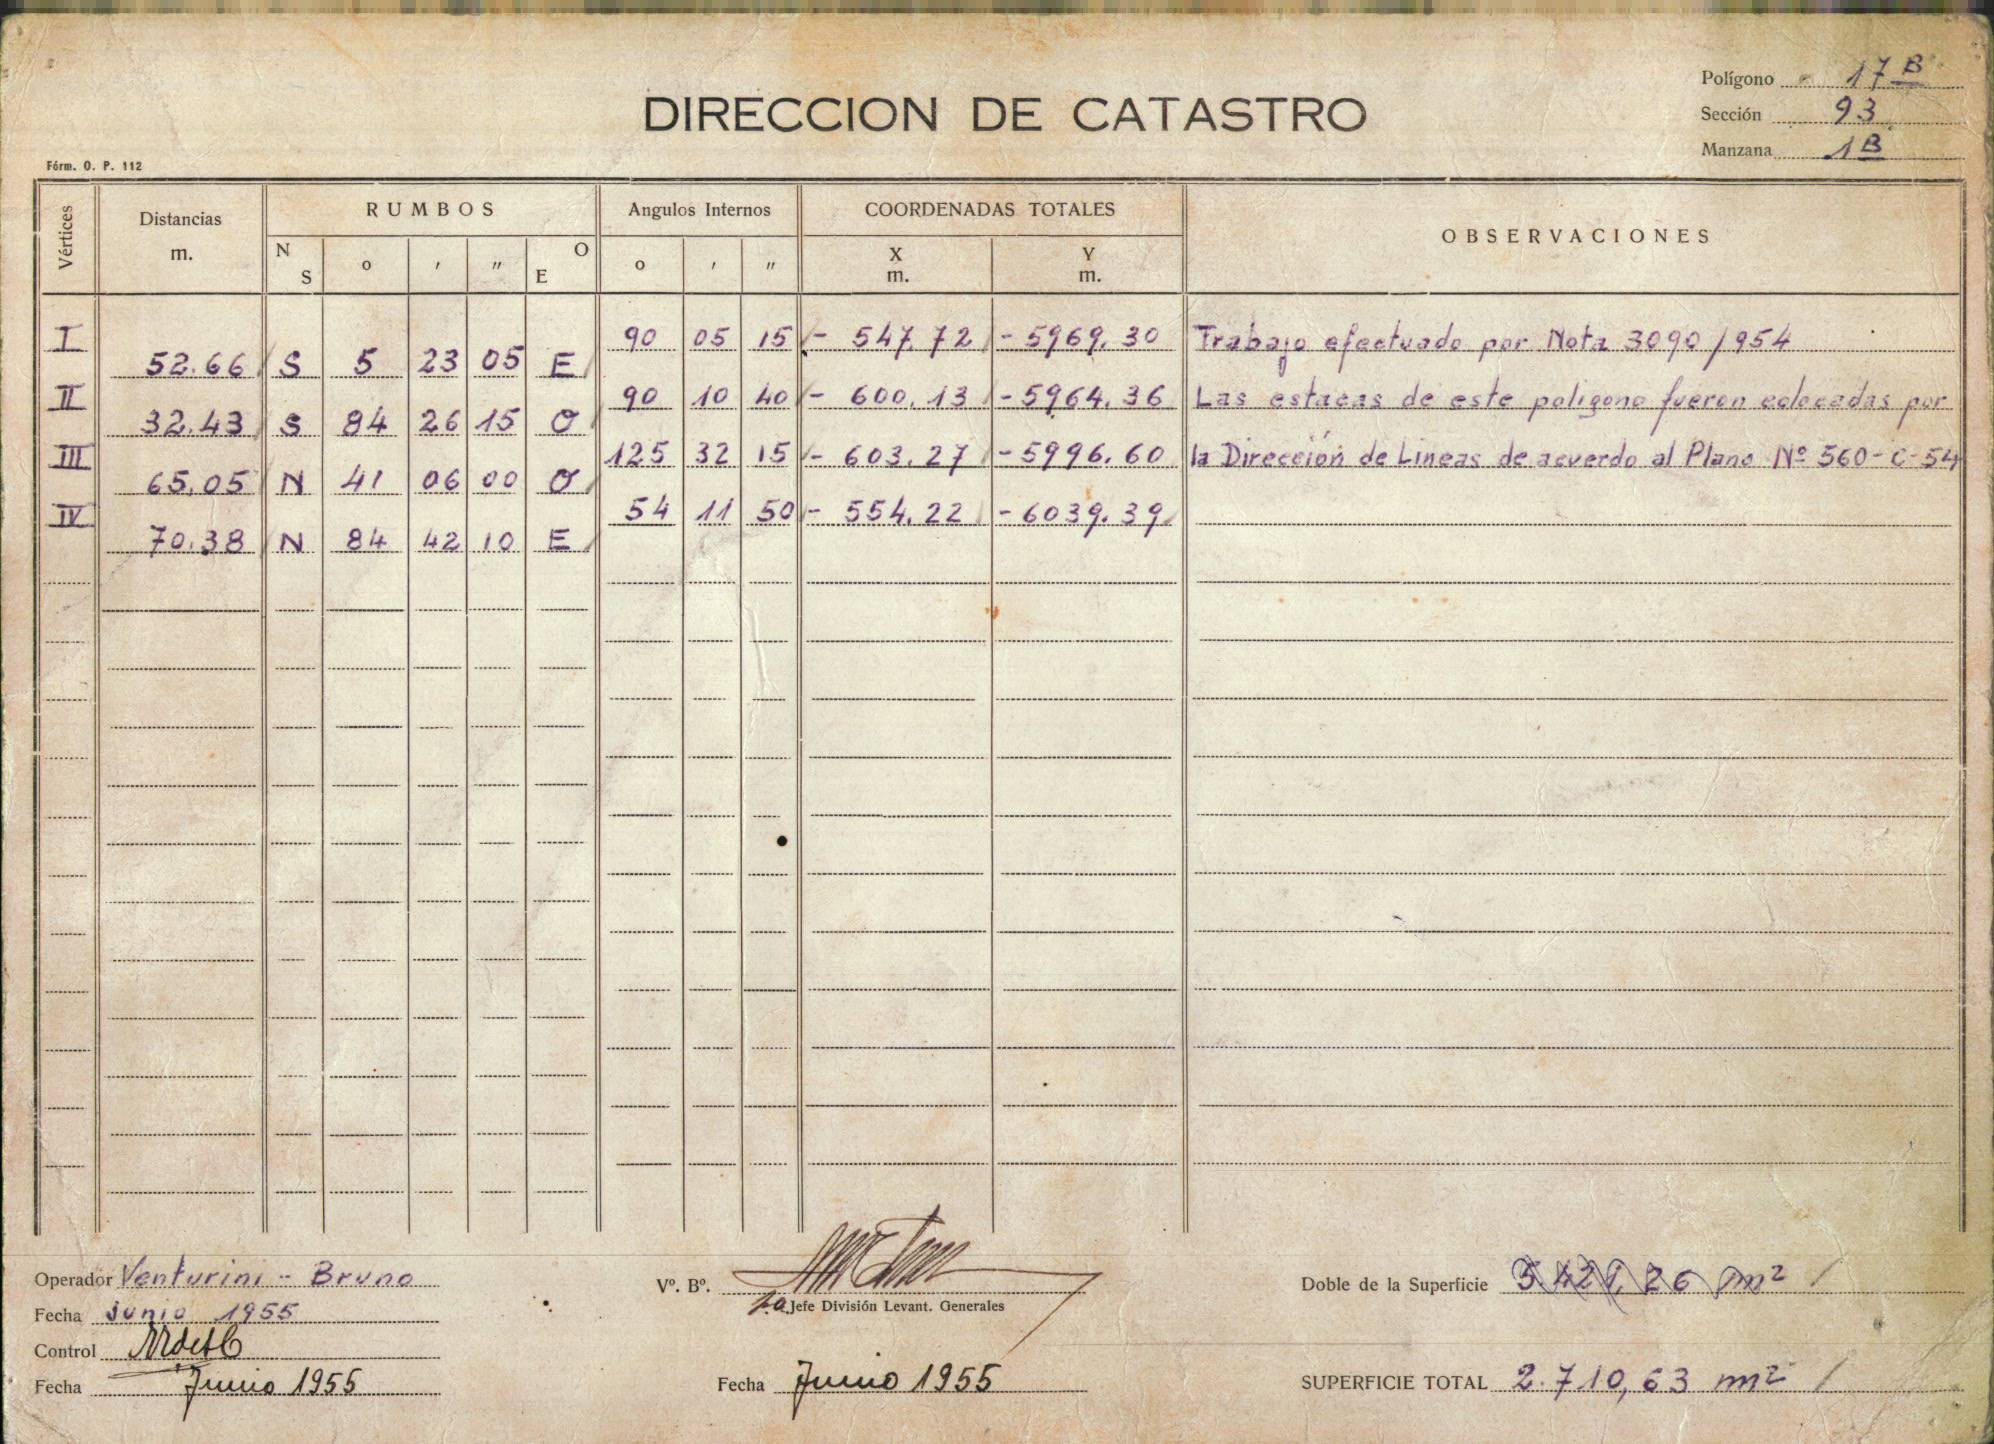 Polígono 17 B
DIRECCION DE CATASTRO
Sección 93
Manzana 1B
Fórm. O. P. 112
Vértices Distancias m. RUMBOS N S o ' " O E Angulos Internos o ' " COORDENADAS TOTALES X m. Y m. OBSERVACIONES
I 90 05 15 - 547.72 - 5969.30 Trabajo efectuado por Nota 3090/954
52.66 S 5 23 05 E
II 90 10 40 - 600.13 - 5964.36 Las estacas de este poligono fueron colocadas por
32.43 S 84 26 15 O
III 125 32 15 - 603.27 - 5996.60 la Dirección de Lineas de acuerdo al Plano Nº 560-C-54
65.05 N 41 06 00 O
IV 54 11 50 - 554.22 - 6039.39
70.38 N 84 42 10 E
Operador Venturini - Bruno
Vº. Bº.
Doble de la Superficie 5421,26 m²
Fecha junio 1955
Jefe División Levant. Generales
Control
Fecha Junio 1955
Fecha Junio 1955
SUPERFICIE TOTAL 2.710,63 m²